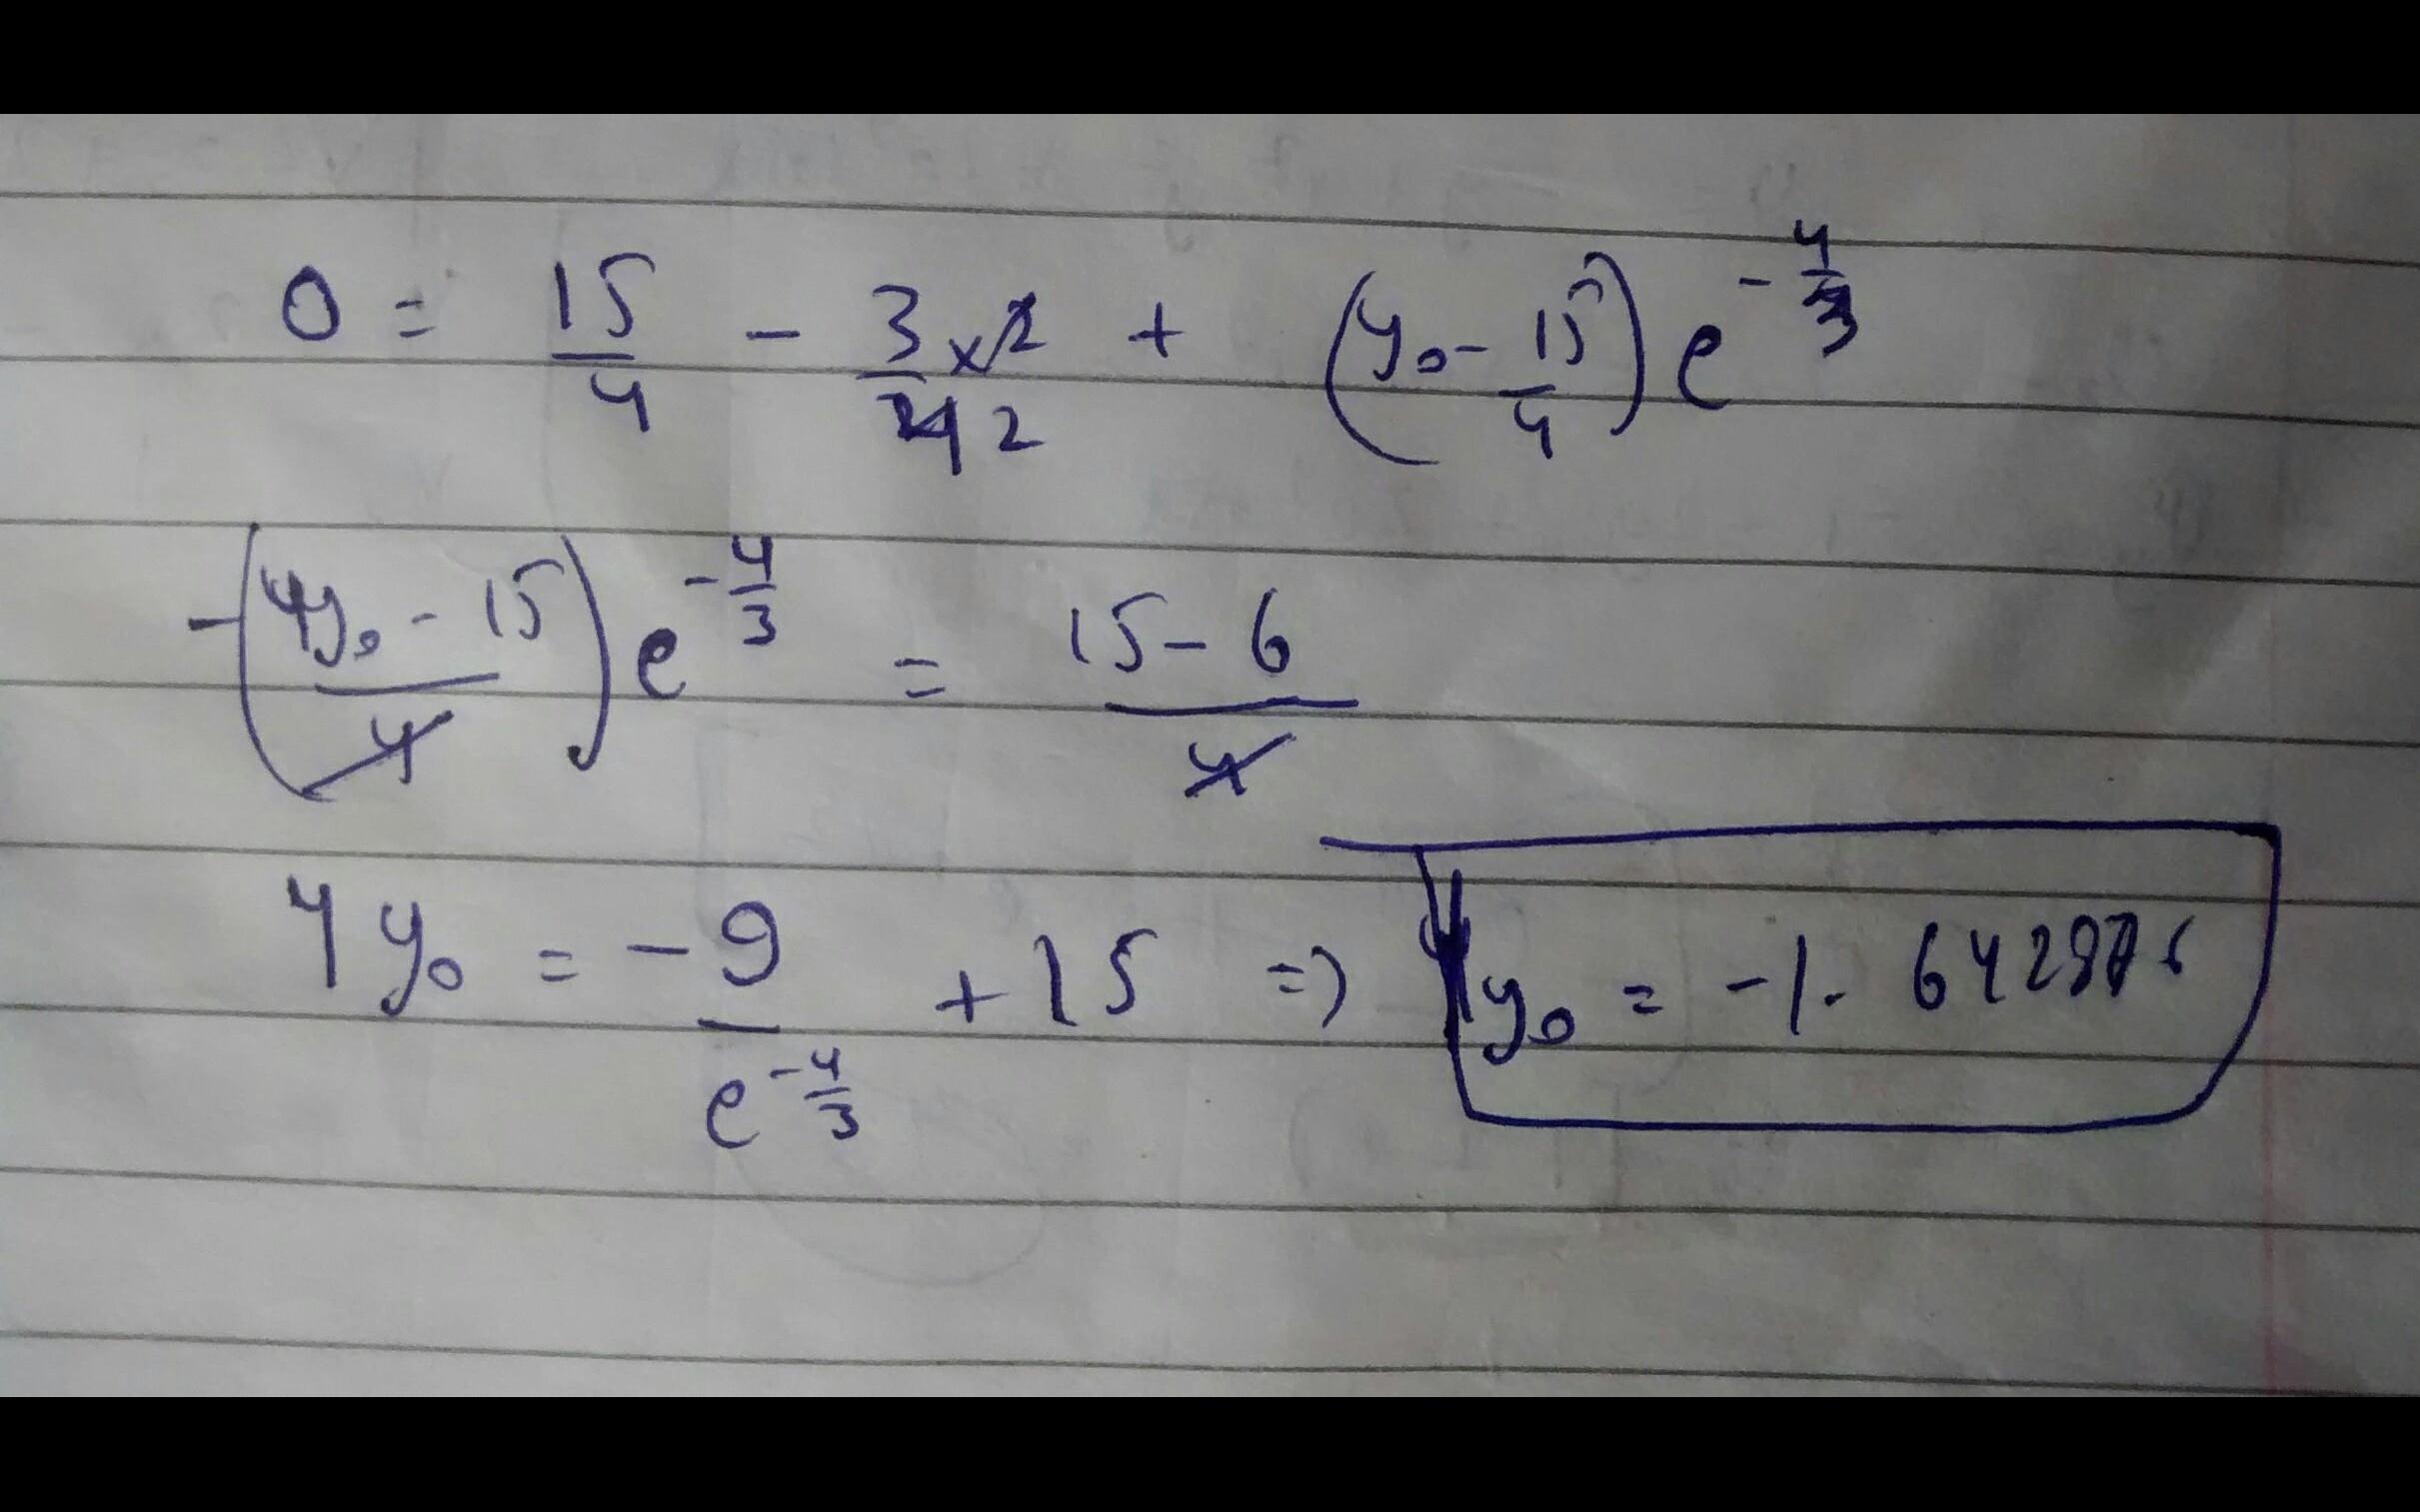 0 = 15/4 - 3/4 x 2 2 + (y₀ - 15/4) e^(-4/3)
-((4y₀ - 15)/4) e^(-4/3) = (15 - 6)/4
4y₀ = -9/e^(-4/3) + 15 => y₀ = -1.642876